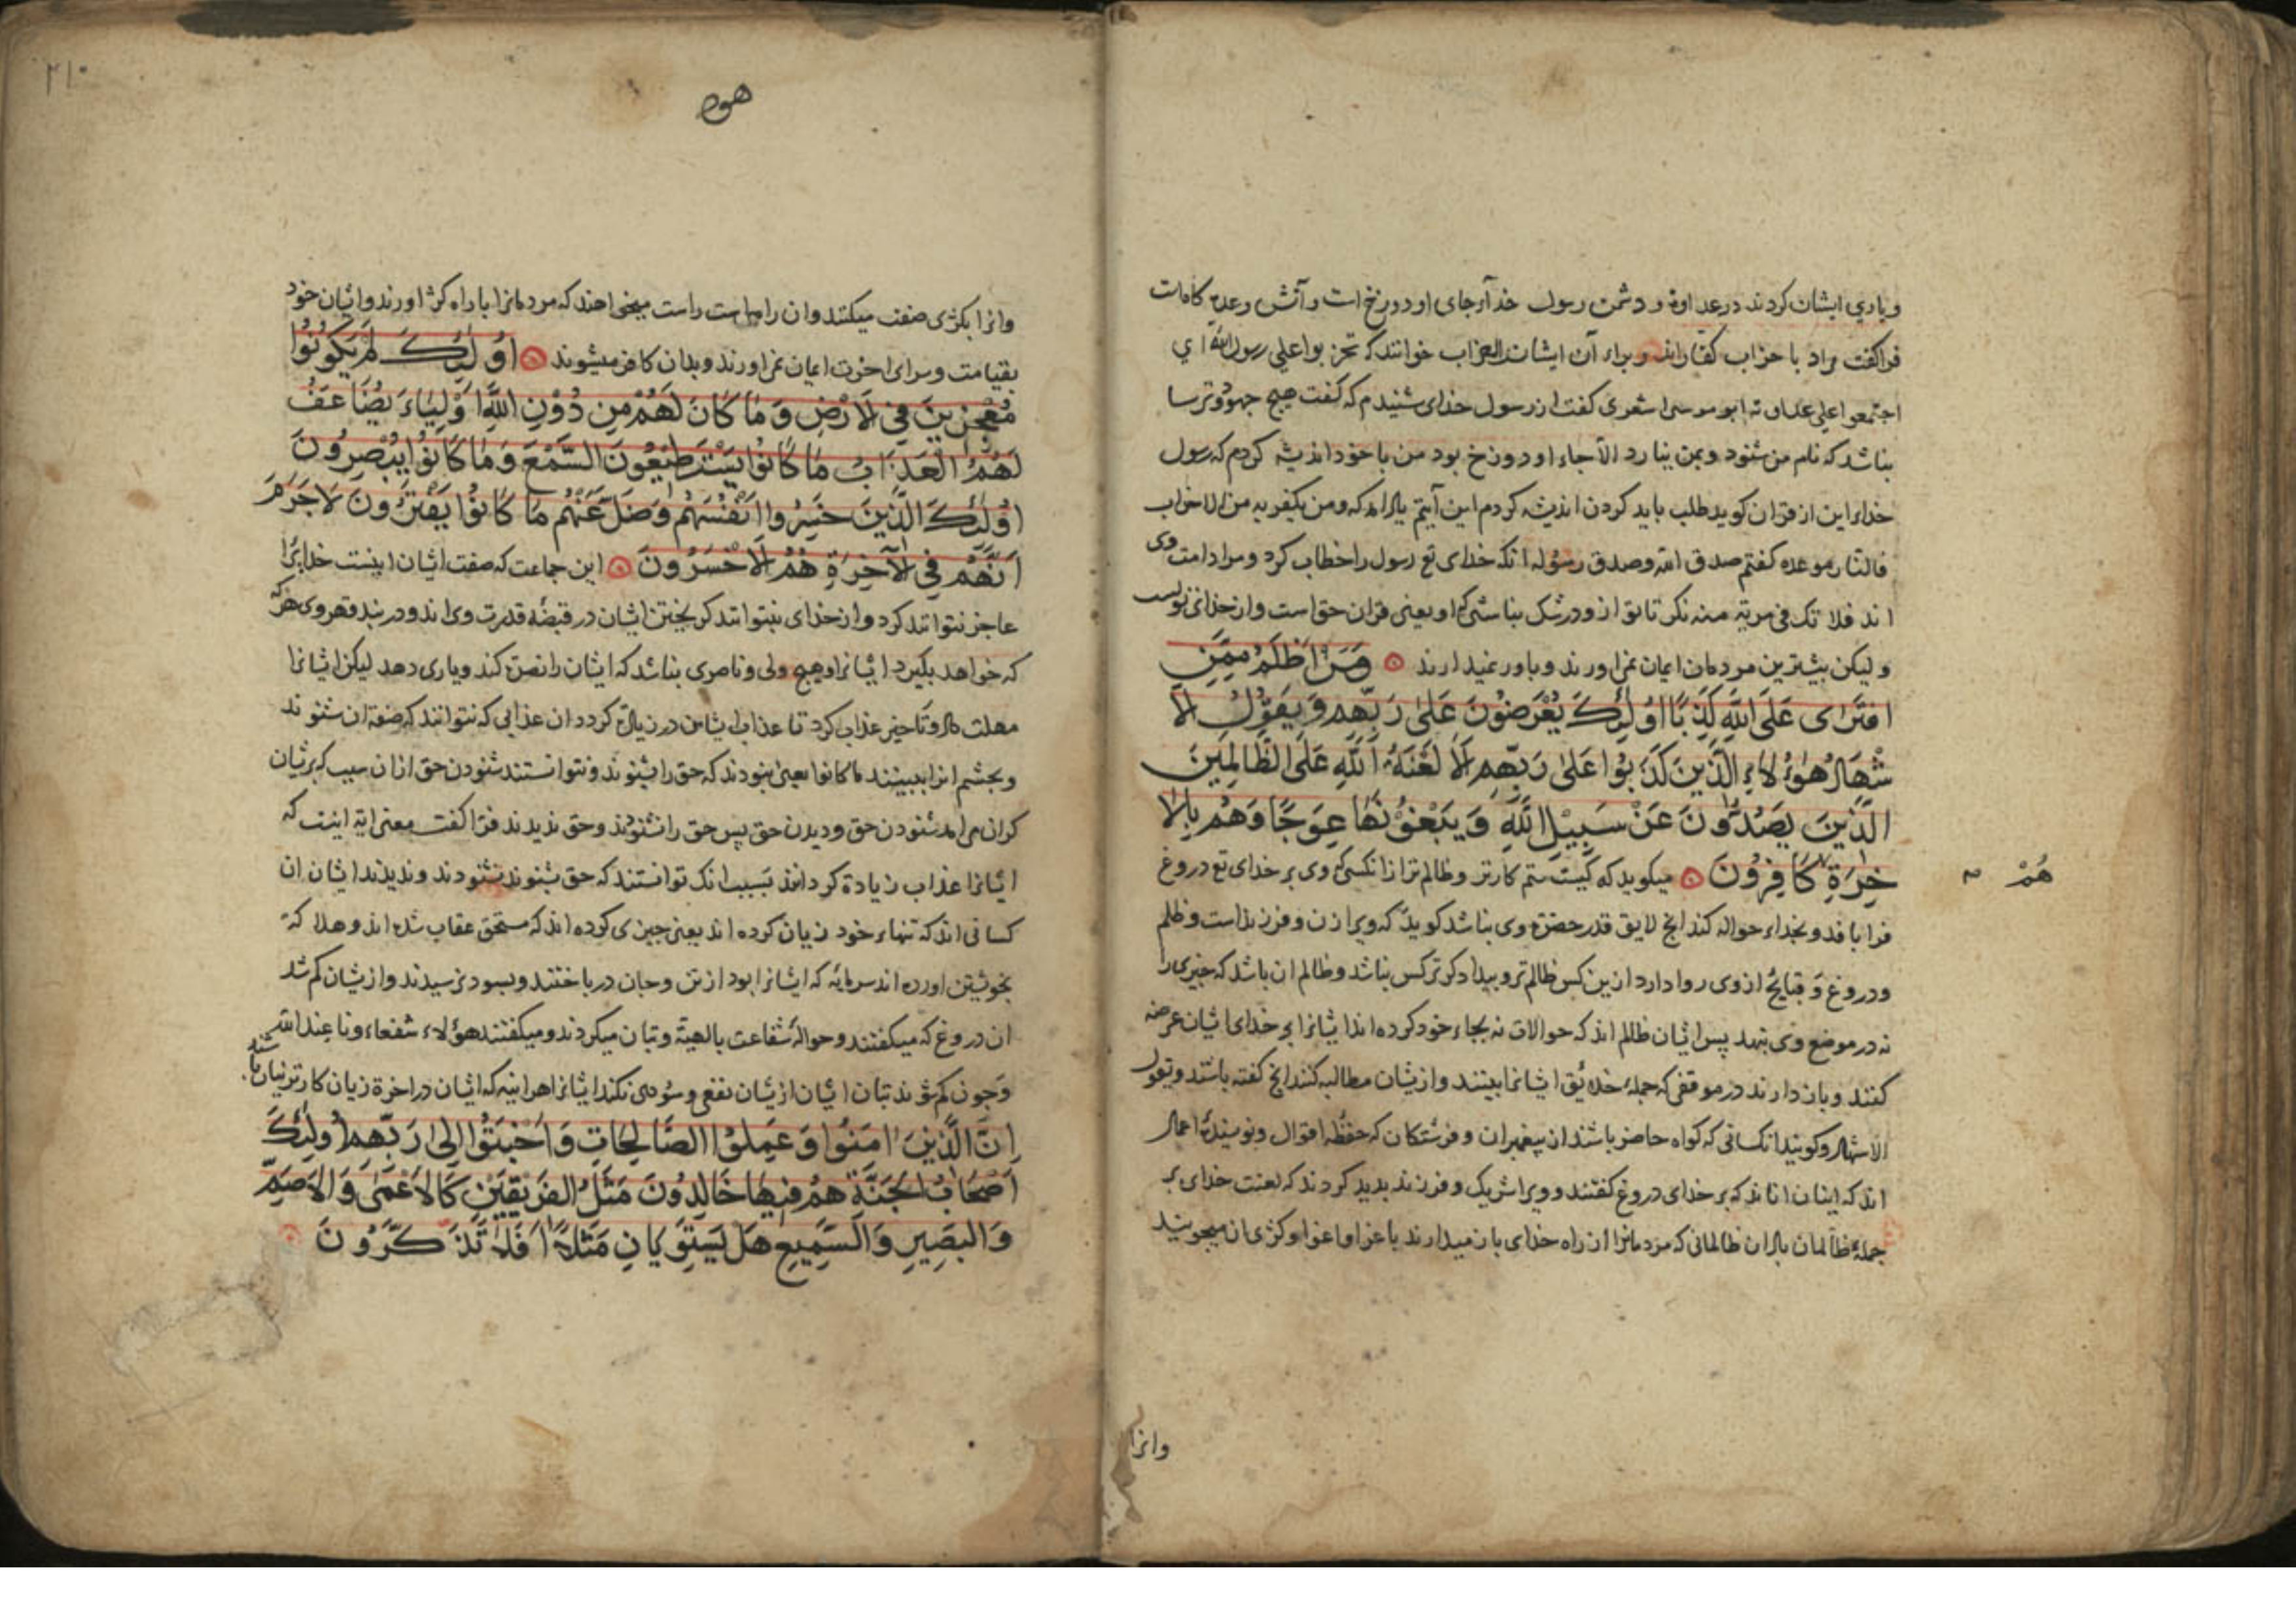 ویاری ایشان کردند در عداوة و دشمنی رسول خدآی جای او دوزخ است و آتش وعده کاه است
فرا کفت مراد با حزاب کفّاراند و برای آن ایشان را احزاب خوانند که تحزبوا علی رسول الله ای
اجتمعوا علی عداوته ابو موسی اشعری کفت از رسول خدای شنیدم که کفت هیچ جهود و ترسا
نباشد که نام من شنود و بمن نیارد الا جاء او دوزخ بود من با خود اندیشه کردم که رسول
خدای این از قران کوید طلب باید کردن اندیشه کردم این آیتم یاد امد که ومن یکفر به من الاحزاب
فالنار موعده کفتم صدق الله وصدق رسوله انک خدای تع رسول را خطاب کرد و مراد امت وی
اند فلا تک فی مریة منه نکر تا تو از و در شک نباشی که او یعنی قران حق است و از خدای تو است
و لیکن بیشترین مردمان ایمان نمی اورند و باور نمیدارند وَمَنْ اَظْلَمُ مِمَّنِ
افْتَرٰی عَلَی اللّٰهِ کَذِبًا اُولٰئِکَ یُعْرَضُونَ عَلٰی رَبِّهِمْ وَ یَقُوْلُ الْاَ
شْهَادُ هٰؤُلَاءِ الَّذِیْنَ کَذَبُوْا عَلٰی رَبِّهِمْ اَلَا لَعْنَةُ اللّٰهِ عَلَی الظَّالِمِیْنَ
الَّذِیْنَ یَصُدُّوْنَ عَنْ سَبِیْلِ اللّٰهِ وَ یَبْغُوْنَهَا عِوَجًا وَهُمْ بِالْاٰ
خِرَةِ کَافِرُوْنَ میکوید که کیست ستم کارتر و ظالم تر از انکسی که وی بر خدای تع دروغ
هُمْ
فرا بافد و بخداء حواله کند انچ لایق قدر حضرة وی نباشد کوید که ویرا زن و فرزند است و ظلم
ودروغ و قبایح از وی روا دارد ازین کس ظالم تر و بیدادکرتر کس نباشد و ظالم ان باشد که چیزی را
نه در موضع وی بنهد پس ایشان ظالم اند که حوالات نه بجاء خود کرده اند ایشانرا بر خدای ایشان عرضه
کنند و باز دارند در موقفی که جمله خلایق ایشانرا ببینند و از یشان مطالبه کنند انچ کفته باشند ویقول
الاشهاد و کویند انکسانی که کواه حاضر باشند از پیغمبران و فرشتکان که حفظه اقوال و نویسندۀ اعمال
اند که اینان انانند که بر خدای دروغ کفتند و ویرا شریک و فرزند بدید کردند که لعنت خدای بر
جملۀ ظالمان باد ان ظالمانی که مردمانرا از راه خدای باز میدارند با غرا و اغوا و کژی ان میجویند
وانرا
هود
۲۱۰
وانرا بکژی صفت میکنند و ان راه راست راست میخواهند که مردمانرا با راه کژ اورند و ایشان خود
بقیامت و سرای اخرت ایمان نمی اورند و بدان کافر میشوند اُولٰئِکَ لَمْ یَکُوْنُوْا
مُعْجِزِیْنَ فِی الْاَرْضِ وَ مَا کَانَ لَهُمْ مِنْ دُوْنِ اللّٰهِ اَوْلِیَاءَ یُضَاعَفُ
لَهُمُ الْعَذَابُ مَا کَانُوْا یَسْتَطِیْعُوْنَ السَّمْعَ وَ مَا کَانُوْا یُبْصِرُوْنَ
اُولٰئِکَ الَّذِیْنَ خَسِرُوا اَنْفُسَهُمْ وَضَلَّ عَنْهُمْ مَا کَانُوْا یَفْتَرُوْنَ لَا جَرَمَ
اَنَّهُمْ فِی الْاٰخِرَةِ هُمُ الْاَخْسَرُوْنَ این جماعت که صفت ایشان اینست خدایرا
عاجز نتوانند کرد و از خدای نتوانند کریختن ایشان در قبضۀ قدرت وی اند و در بند قهر وی هرکه
که خواهد بکیرد ایشانرا و هیچ ولی و ناصری نباشد که ایشان را نصرة کند و یاری دهد لیکن ایشانرا
مهلت داد و تاخیر عذاب کرد تا عذاب ایشان در زیادة کردد ان عذابی که نتوانند که صفة ان شنوند
وبچشم انرا ببینند ما کانوا یعنی نبودند که حق را بشنوند و نتوانستند شنودن حق ازان سبب که بریشان
کران می امد شنودن حق و دیدن حق پس حق را نشنوند و حق ندیدند فرا کفت معنی ایة اینست که
ایشانرا عذاب زیادة کردانند بسبب انک توانستند که حق بشنوند نشنودند و ندیدند ایشان ان
کسانی اند که تنهاء خود زیان کرده اند یعنی چیزی کرده اند که مستحق عقاب شده اند و هلاکة
بخویشتن اورده اند سرمایه که ایشانرا بود از تن و جان در باختند و بسود نرسیدند و ازیشان کم شد
ان دروغ که میکفتند و حوالۀ شفاعت بالهیة و بتان میکردند و میکفتند هؤلاء شفعاءونا عند الله
وچون کم شوند بتان ایشان ازیشان نفع و سودی نکند ایشانرا هراینه که ایشان در اخرة زیان کارترینان باشند
اِنَّ الَّذِیْنَ اٰمَنُوْا وَ عَمِلُوا الصَّالِحَاتِ وَ اَخْبَتُوْا اِلٰی رَبِّهِمْ اُولٰئِکَ
اَصْحَابُ الْجَنَّةِ هُمْ فِیْهَا خَالِدُوْنَ مَثَلُ الْفَرِیْقَیْنِ کَالْاَعْمٰی وَ الْاَصَمِّ
وَ الْبَصِیْرِ وَ السَّمِیْعِ هَلْ یَسْتَوِیَانِ مَثَلًا اَفَلَا تَذَکَّرُوْنَ